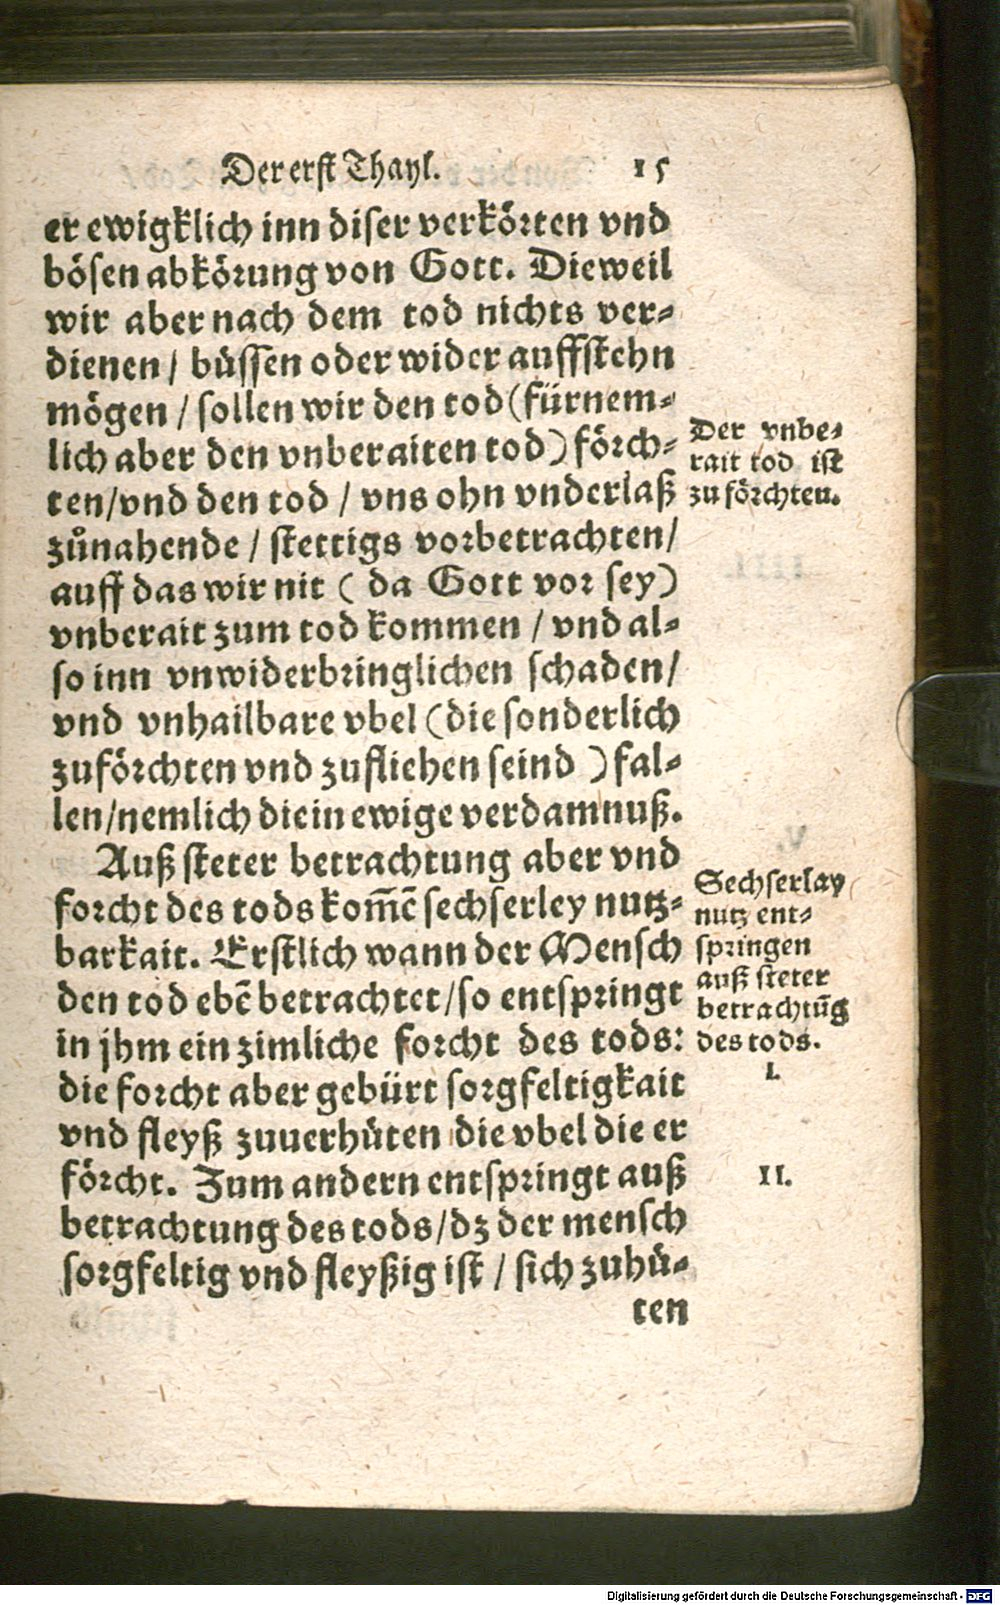 Der erst Thayl. 15
er ewigklich inn diser verkörten vnd
bösen abkörung von Gott. Dieweil
wir aber nach dem tod nichts ver-
dienen / büssen oder wider auffstehn
mögen / sollen wir den tod (fürnem-
lich aber den vnberaiten tod) förch-
ten/vnd den tod / vns ohn vnderlaß
zůnahende / stettigs vorbetrachten/
auff das wir nit ( da Gott vor sey)
vnberait zum tod kommen / vnd al-
so inn vnwiderbringlichen schaden/
vnd vnhailbare vbel (die sonderlich
zuförchten vnd zufliehen seind ) fal-
len/nemlich die in ewige verdamnuß.
Auß steter betrachtung aber vnd
forcht des tods kom̃ẽ sechserley nutz-
barkait. Erstlich wann der Mensch
den tod ebẽ betrachtet/so entspringt
in jhm ein zimliche forcht des tods:
die forcht aber gebürt sorgfeltigkait
vnd fleyß zuuerhüten die vbel die er
förcht. Zum andern entspringt auß
betrachtung des tods/dz der mensch
sorgfeltig vnd fleyßig ist / sich zuhü-
ten
Der vnbe-
rait tod ist
zu förchten.
Sechserlay
nutz ent-
springen
auß steter
betrachtũg
des tods.
I.
II.
Digitalisierung gefördert durch die Deutsche Forschungsgemeinschaft - DFG